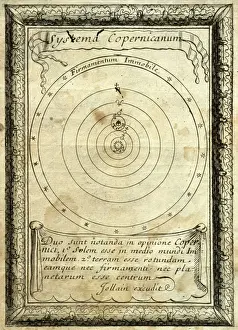 Systema Copernicanum
Firmamentum Immobile
Duo sunt notanda in opinione Coper
nici, 1º Solem esse in medio mundi Im
mobilem 2º terram esse rotundam
eamque nec firmamenti nec pla
netarum esse centrum
Jollain excudit